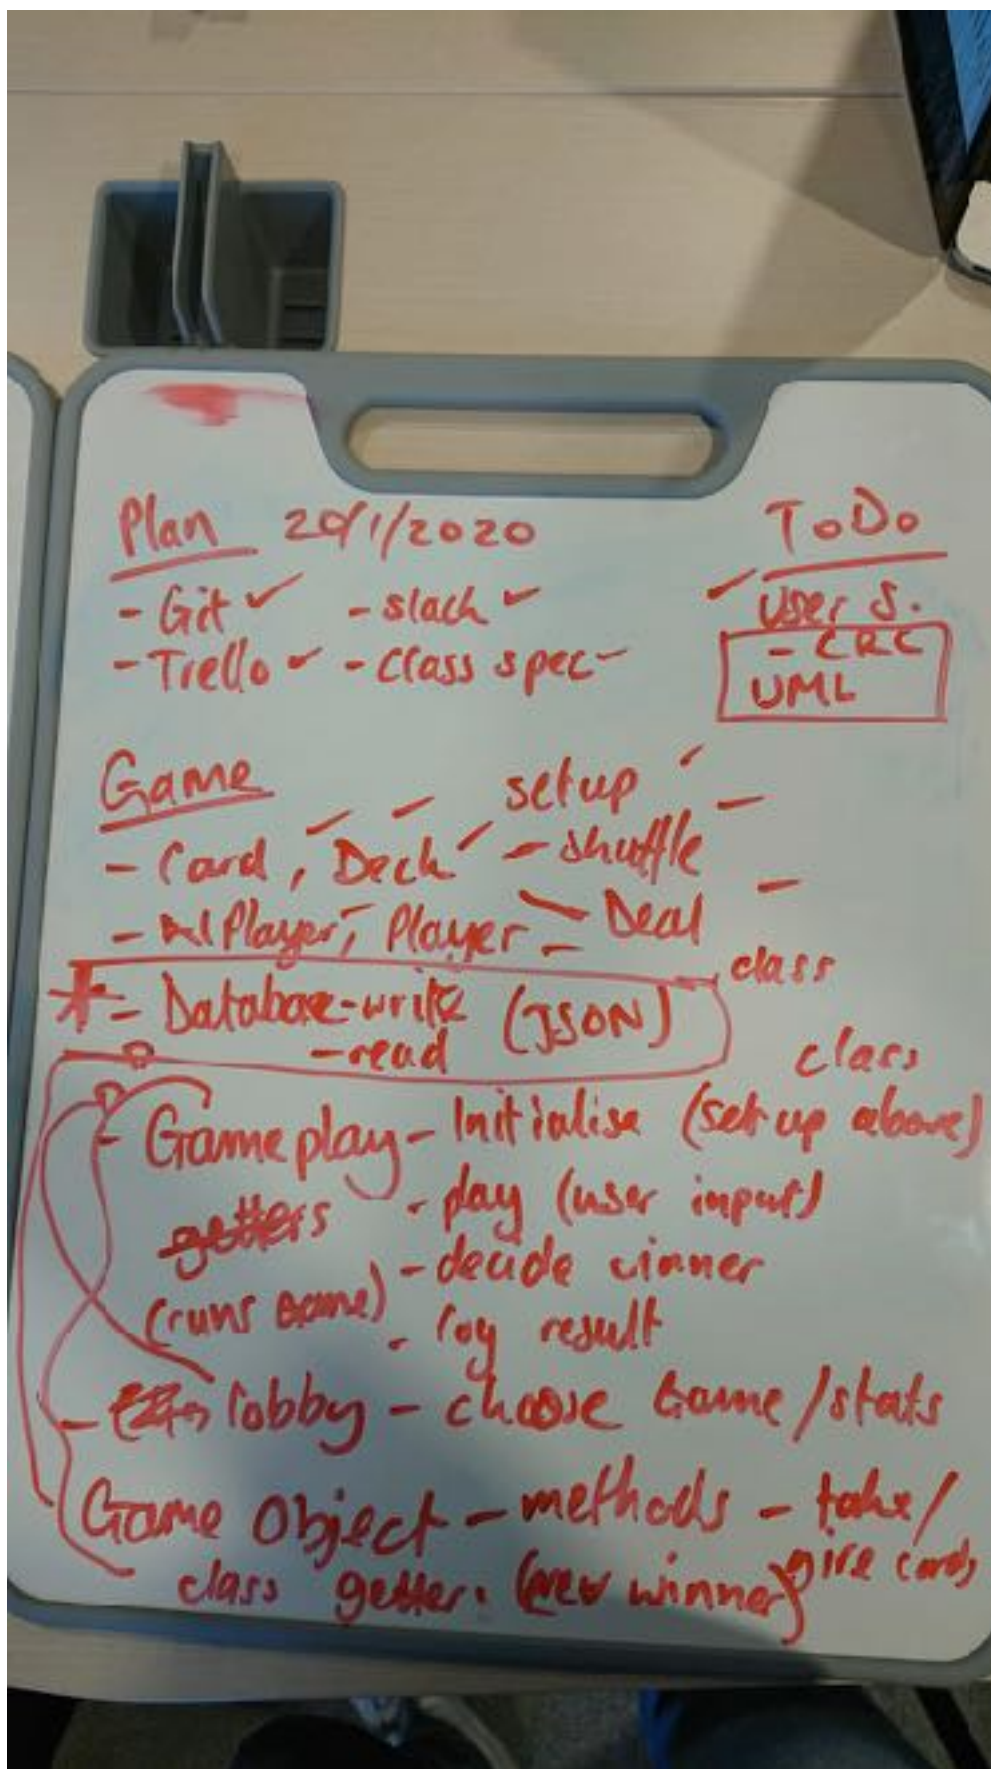 Plan 20/1/2020
- Git ✓ - slack ✓
- Trello ✓ - class spec -
ToDo
✓ User S.
- CRC
UML
Game setup ✓
- Card, Deck ✓ - shuffle
- AI Player, Player - Deal
class
* - Database - write (JSON)
- read
class
- Gameplay - Initialise (set up above)
getters - play (user input)
- decide winner
(runs game)
- log result
- lobby - choose Game/stats
Game Object - methods - take/
give cards
class getter. (prev winner)